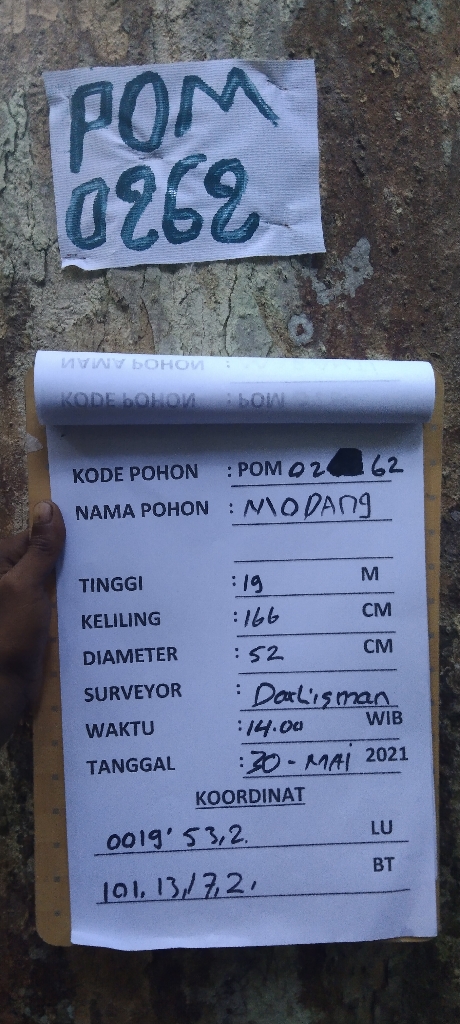 POM
0262
NAMA POHON :
KODE POHON : POM
KODE POHON : POM 02 62
NAMA POHON : MODANG
TINGGI : 19 M
KELILING : 166 CM
DIAMETER : 52 CM
SURVEYOR : Darlisman
WAKTU : 14.00 WIB
TANGGAL : 30 - MAI 2021
KOORDINAT
0019' 53,2. LU
BT
101, 13,/7,2,